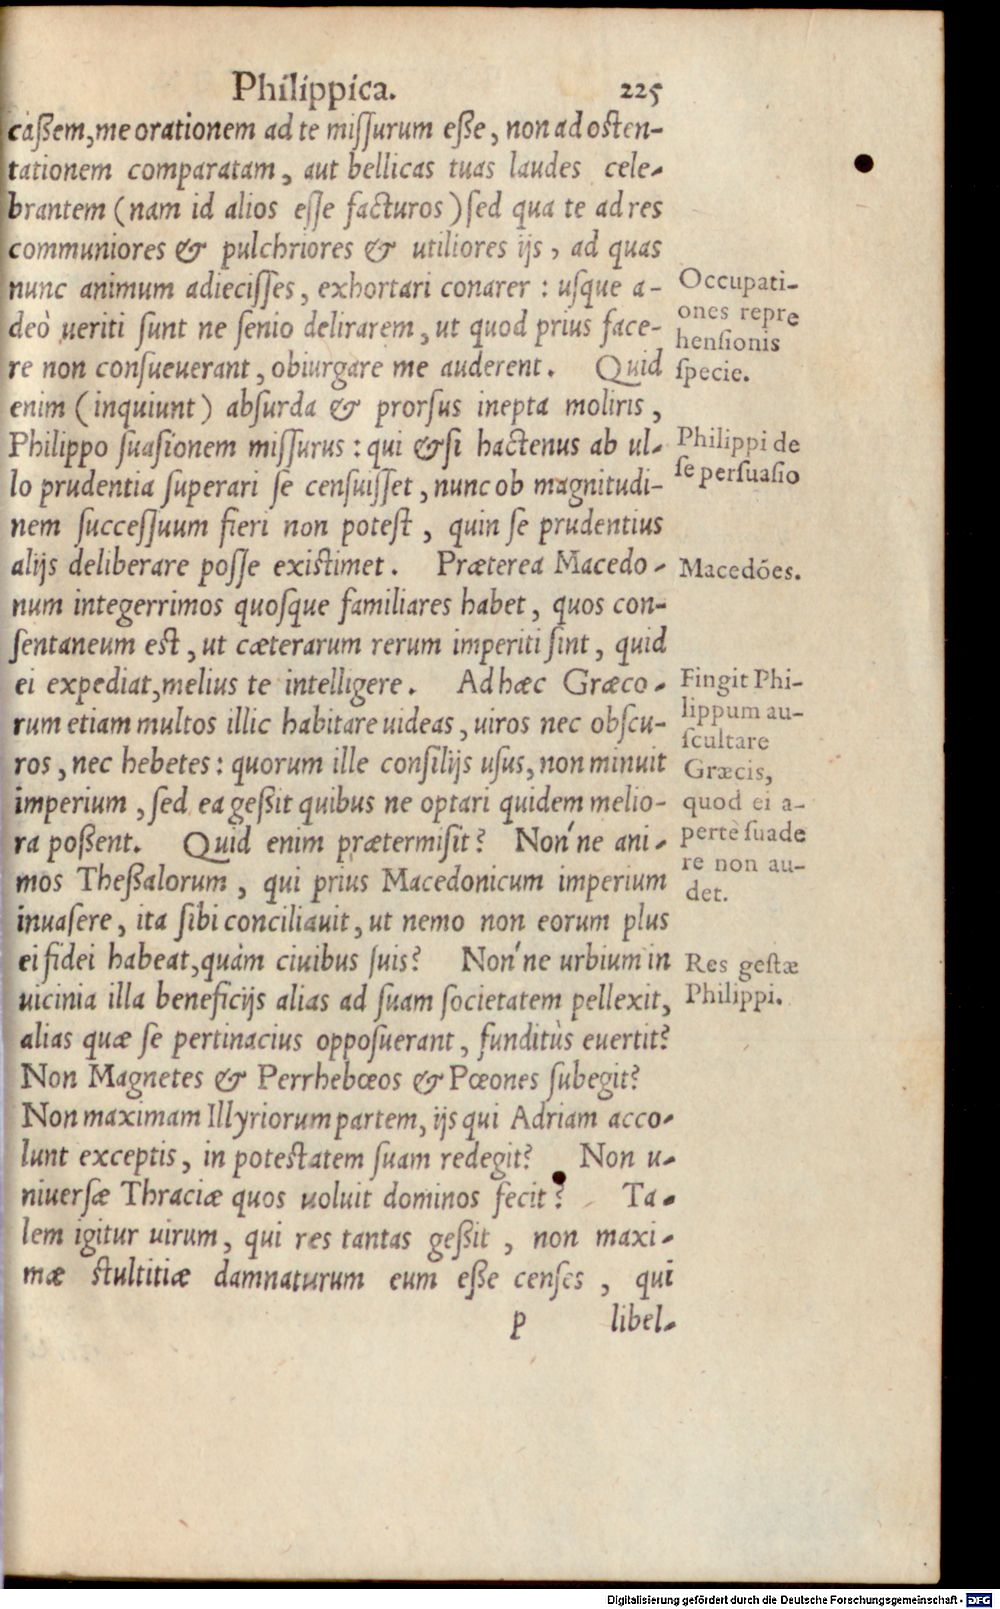 Philippica. 225
caßem, me orationem ad te miſſurum eße, non ad oſten-
tationem comparatam, aut bellicas tuas laudes cele-
brantem (nam id alios eſſe facturos) ſed qua te ad res
communiores & pulchriores & utiliores ijs, ad quas
nunc animum adieciſſes, exhortari conarer: uſque a-
deò ueriti ſunt ne ſenio delirarem, ut quod prius face-
re non conſueuerant, obiurgare me auderent. Quid
enim (inquiunt) abſurda & prorſus inepta moliris,
Philippo ſuaſionem miſſurus: qui &ſi hactenus ab ul-
lo prudentia ſuperari ſe cenſuiſſet, nunc ob magnitudi-
nem ſucceſſuum fieri non poteſt, quin ſe prudentius
alijs deliberare poſſe exiſtimet. Præterea Macedo-
num integerrimos quoſque familiares habet, quos con-
ſentaneum eſt, ut cæterarum rerum imperiti ſint, quid
ei expediat, melius te intelligere. Ad hæc Græco-
rum etiam multos illic habitare uideas, uiros nec obſcu-
ros, nec hebetes: quorum ille conſilijs uſus, non minuit
imperium, ſed ea geßit quibus ne optari quidem melio-
ra poßent. Quid enim prætermiſit? Non´ne ani-
mos Theßalorum, qui prius Macedonicum imperium
inuaſere, ita ſibi conciliauit, ut nemo non eorum plus
ei fidei habeat, quàm ciuibus ſuis? Non´ne urbium in
uicinia illa beneficijs alias ad ſuam ſocietatem pellexit,
alias quæ ſe pertinacius oppoſuerant, funditùs euertit?
Non Magnetes & Perrhebœos & Pœones ſubegit?
Non maximam Illyriorum partem, ijs qui Adriam acco-
lunt exceptis, in poteſtatem ſuam redegit? Non u-
niuerſæ Thraciæ quos uoluit dominos fecit? Ta-
lem igitur uirum, qui res tantas geßit, non maxi-
mæ ſtultitiæ damnaturum eum eße cenſes, qui
p libel-
Occupati-
ones repre
henſionis
ſpecie.
Philippi de
ſe perſuaſio
Macedões.
Fingit Phi-
lippum au-
ſcultare
Græcis,
quod ei a-
pertè ſuade
re non au-
det.
Res geſtæ
Philippi.
Digitalisierung gefördert durch die Deutsche Forschungsgemeinschaft - DFG